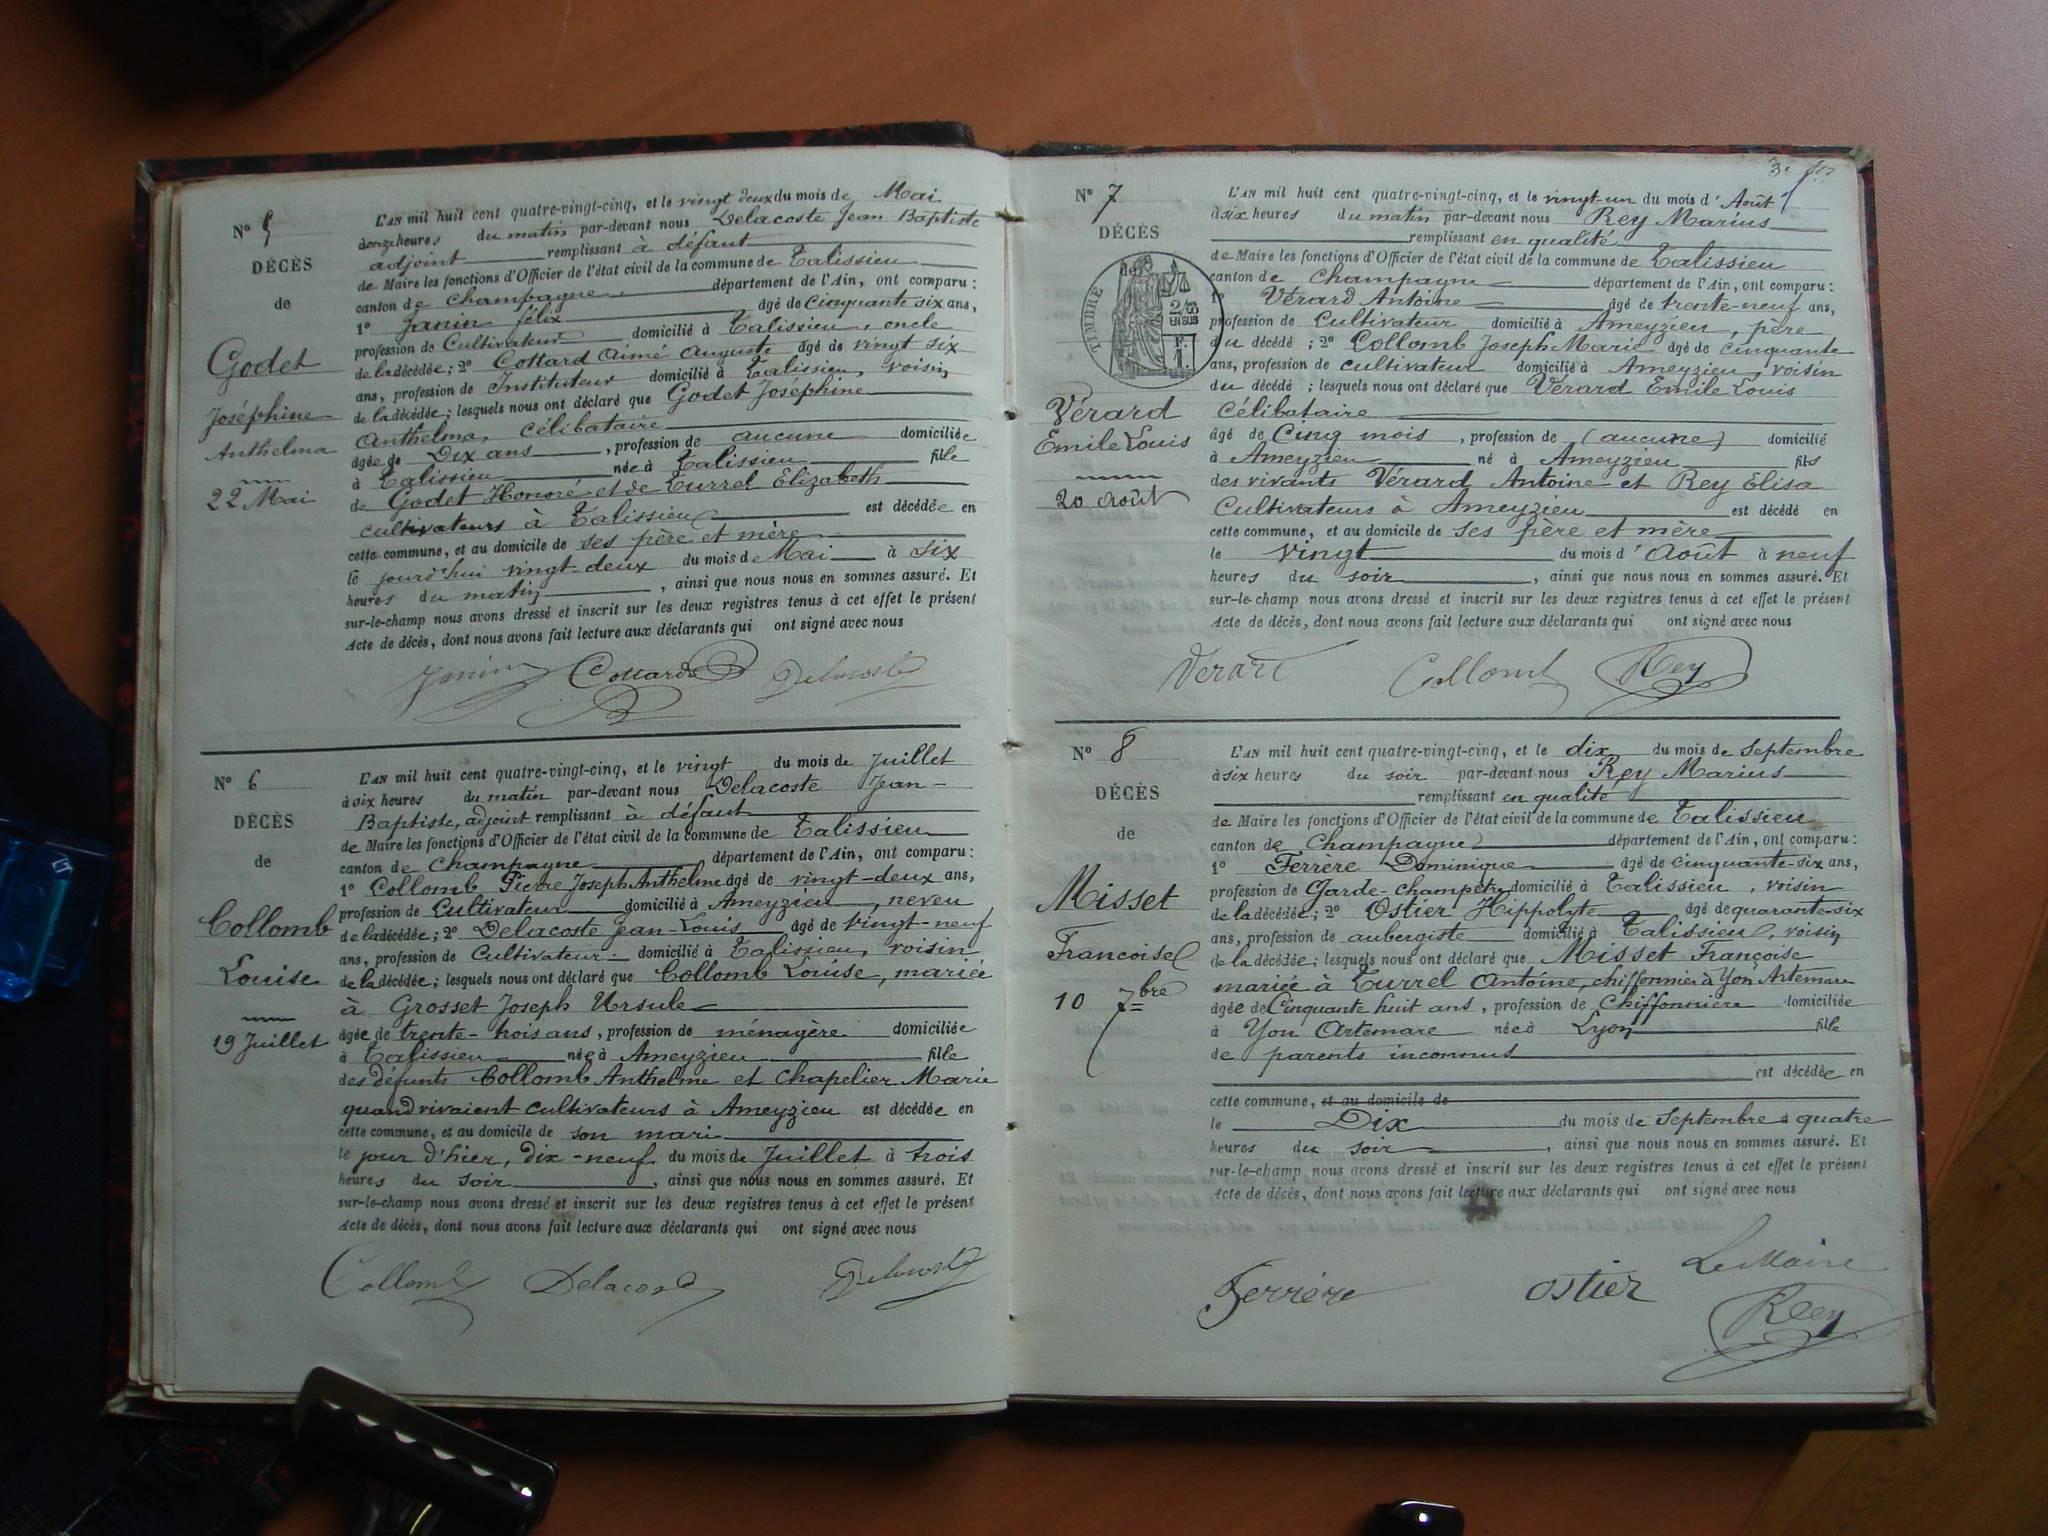 N° 5
DÉCÈS
de
Godet
Joséphine
Anthelma
22 Mai
L'AN mil huit cent quatre-vingt-cinq, et le vingt deux du mois de Mai
à onze heures du matin par-devant nous Delacoste Jean Baptiste
adjoint remplissant à défaut
de Maire les fonctions d'Officier de l'état civil de la commune de Talissieu
canton de Champagne département de l'Ain, ont comparu :
1° Janin félix âgé de Cinquante six ans,
profession de Cultivateur domicilié à Talissieu, oncle
de la décédée ; 2° Cottard Aimé Auguste âgé de vingt six
ans, profession de Instituteur domicilié à Talissieu, voisin
de la décédée ; lesquels nous ont déclaré que Godet Joséphine
Anthelma, célibataire
âgée de Dix ans , profession de aucune domiciliée
à Talissieu née à Talissieu fille
de Godet Honoré et de Turrel Elizabeth
cultivateurs à Talissieu est décédée en
cette commune, et au domicile de ses père et mère
le jourd'hui vingt-deux du mois de Mai à six
heures du matin , ainsi que nous nous en sommes assuré. Et
sur-le-champ nous avons dressé et inscrit sur les deux registres tenus à cet effet le présent
Acte de décès, dont nous avons fait lecture aux déclarants qui ont signé avec nous
Janin Cottard Delacoste
N° 6
DÉCÈS
de
Collomb
Louise
19 Juillet
L'AN mil huit cent quatre-vingt-cinq, et le vingt du mois de Juillet
à six heures du matin par-devant nous Delacoste Jean-
Baptiste, adjoint remplissant à défaut
de Maire les fonctions d'Officier de l'état civil de la commune de Talissieu
canton de Champagne département de l'Ain, ont comparu :
1° Collomb Pierre Joseph Anthelme âgé de vingt-deux ans,
profession de Cultivateur domicilié à Ameyzieu, neveu
de la décédée ; 2° Delacoste Jean-Louis âgé de vingt-neuf
ans, profession de Cultivateur domicilié à Talissieu, voisin
de la décédée ; lesquels nous ont déclaré que Collomb Louise, mariée
à Grosset Joseph Ursule
âgée de trente-trois ans, profession de ménagère domiciliée
à Talissieu née à Ameyzieu fille
des défunts Collomb Anthelme et Chapelier Marie
quand vivaient cultivateurs à Ameyzieu est décédée en
cette commune, et au domicile de son mari
le jour d'hier, dix-neuf du mois de Juillet à trois
heures du soir , ainsi que nous nous en sommes assuré. Et
sur-le-champ nous avons dressé et inscrit sur les deux registres tenus à cet effet le présent
Acte de décès, dont nous avons fait lecture aux déclarants qui ont signé avec nous
Collomb Delacoste Delacoste
3e
N° 7
DÉCÈS
de
TIMBRE
2/10
EN SUS
Vérard
Emile Louis
20 Août
L'AN mil huit cent quatre-vingt-cinq, et le vingt-un du mois d'Août
à six heures du matin par-devant nous Rey Marius
remplissant en qualité
de Maire les fonctions d'Officier de l'état civil de la commune de Talissieu
canton de Champagne département de l'Ain, ont comparu :
1° Vérard Antoine âgé de trente-neuf ans,
profession de Cultivateur domicilié à Ameyzieu, père
du décédé ; 2° Collomb Joseph Marie âgé de cinquante
ans, profession de cultivateur domicilié à Ameyzieu, voisin
du décédé ; lesquels nous ont déclaré que Vérard Emile Louis
Célibataire
âgé de Cinq mois , profession de (aucune) domicilié
à Ameyzieu né à Ameyzieu fils
des vivants Vérard Antoine et Rey Elisa
Cultivateurs à Ameyzieu est décédé en
cette commune, et au domicile de ses père et mère
le vingt du mois d'Août à neuf
heures du soir , ainsi que nous nous en sommes assuré. Et
sur-le-champ nous avons dressé et inscrit sur les deux registres tenus à cet effet le présent
Acte de décès, dont nous avons fait lecture aux déclarants qui ont signé avec nous
Verard Collomb Rey
N° 8
DÉCÈS
de
Misset
Francoise
10 7bre
L'AN mil huit cent quatre-vingt-cinq, et le dix du mois de Septembre
à six heures du soir par-devant nous Rey Marius
remplissant en qualité
de Maire les fonctions d'Officier de l'état civil de la commune de Talissieu
canton de Champagne département de l'Ain, ont comparu :
1° Ferrère Dominique âgé de cinquante-six ans,
profession de Garde-champêtre domicilié à Talissieu, voisin
de la décédée ; 2° Ostier Hippolyte âgé de quarante-six
ans, profession de aubergiste domicilié à Talissieu, voisin
de la décédée ; lesquels nous ont déclaré que Misset Françoise
mariée à Turrel Antoine, chiffonnier à Yon Artemare
âgée de Cinquante huit ans, profession de Chiffonnière domiciliée
à Yon Artemare née à Lyon fille
de parents inconnus
est décédée en
cette commune, et au domicile de
le Dix du mois de Septembre à quatre
heures du soir , ainsi que nous nous en sommes assuré. Et
sur-le-champ nous avons dressé et inscrit sur les deux registres tenus à cet effet le présent
Acte de décès, dont nous avons fait lecture aux déclarants qui ont signé avec nous
Le Maire
Ferrère Ostier Rey